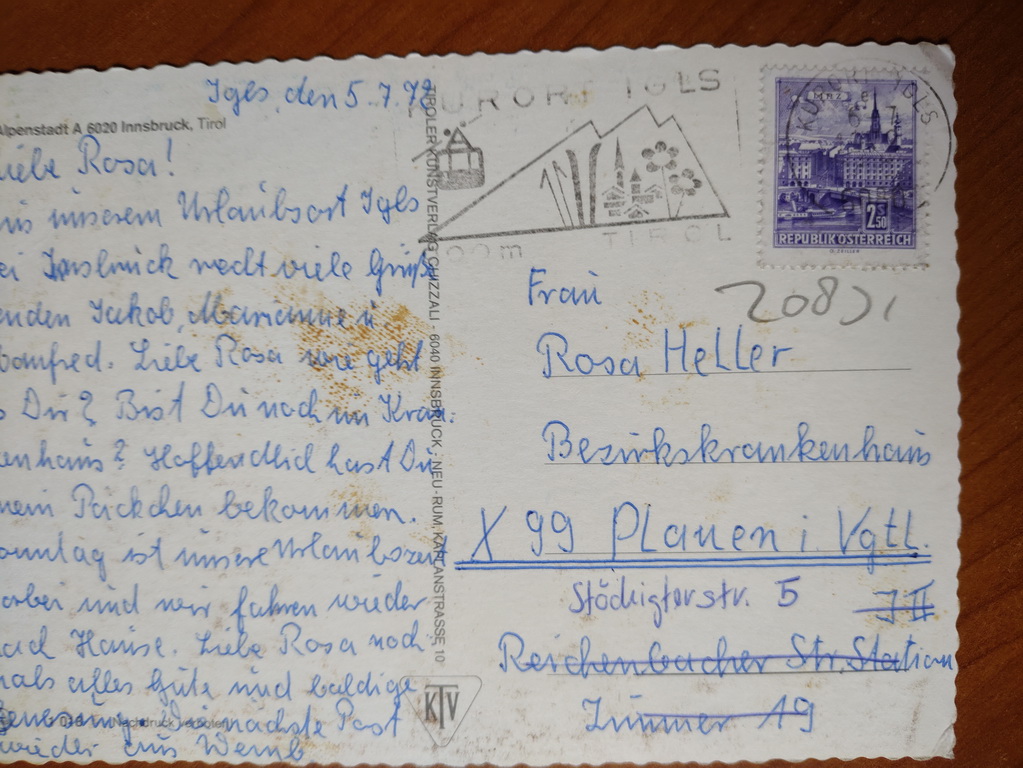 Igls, den 5.7.78
Alpenstadt A 6020 Innsbruck, Tirol
Liebe Rosa!
aus unserem Urlaubsort Igls
bei Innsbruck recht viele Grüße
enden Jakob, Marianne u.
Manfred. Liebe Rosa wie geht
s Dir? Bist Du noch im Kran-
enhaus? Hoffendlich hast Du
mein Päckchen bekommen.
onntag ist unsere Urlaubszeit
orbei und wir fahren wieder
nach Hause. Liebe Rosa noch
mals alles Gute und baldige
Genesung. Die nächste Post
wieder aus Wemb
Nachdruck verboten
TIROLER KUNSTVERLAG CHIZZALI · 6040 INNSBRUCK · NEU-RUM, KAPLANSTRASSE 10
KTV
KURORT IGLS
900m TIROL
KURORT IGLS
2.50
REPUBLIK ÖSTERREICH
Frau
Rosa Heller
Bezirkskrankenhaus
X 99 Plauen i. Vgtl.
Stöckigterstr. 5
I II
Reichenbacher Str. Station
Zimmer 19